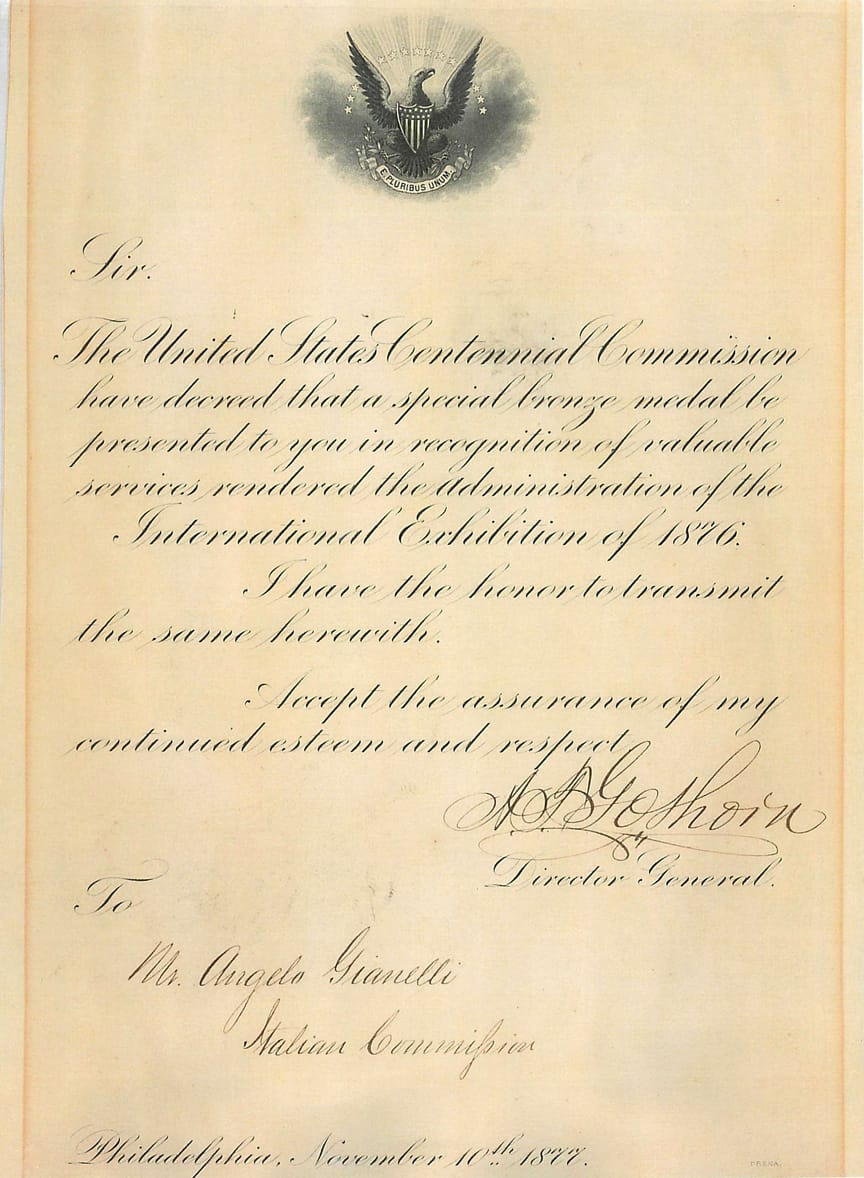 E PLURIBUS UNUM.
Sir.
The United States Centennial Commission
have decreed that a special bronze medal be
presented to you in recognition of valuable
services rendered the administration of the
International Exhibition of 1876.
I have the honor to transmit
the same herewith.
Accept the assurance of my
continued esteem and respect
A. T. Goshorn
Director General.
To
Mr. Angelo Gianelli
Italian Commission
Philadelphia, November 10th 1877.
DREKA.